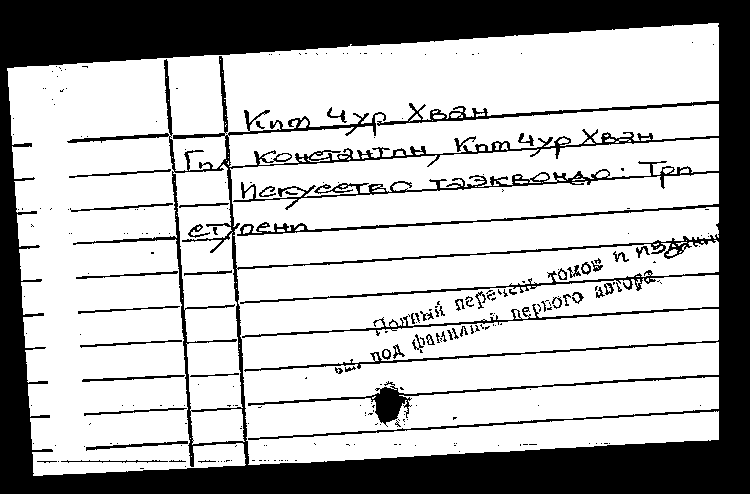 Ким Чур Хван
Гил Константин, Ким Чур Хван
Искусство таэквондо: Три
ступени
Полный перечень томов и изданий
см. под фамилией первого автора